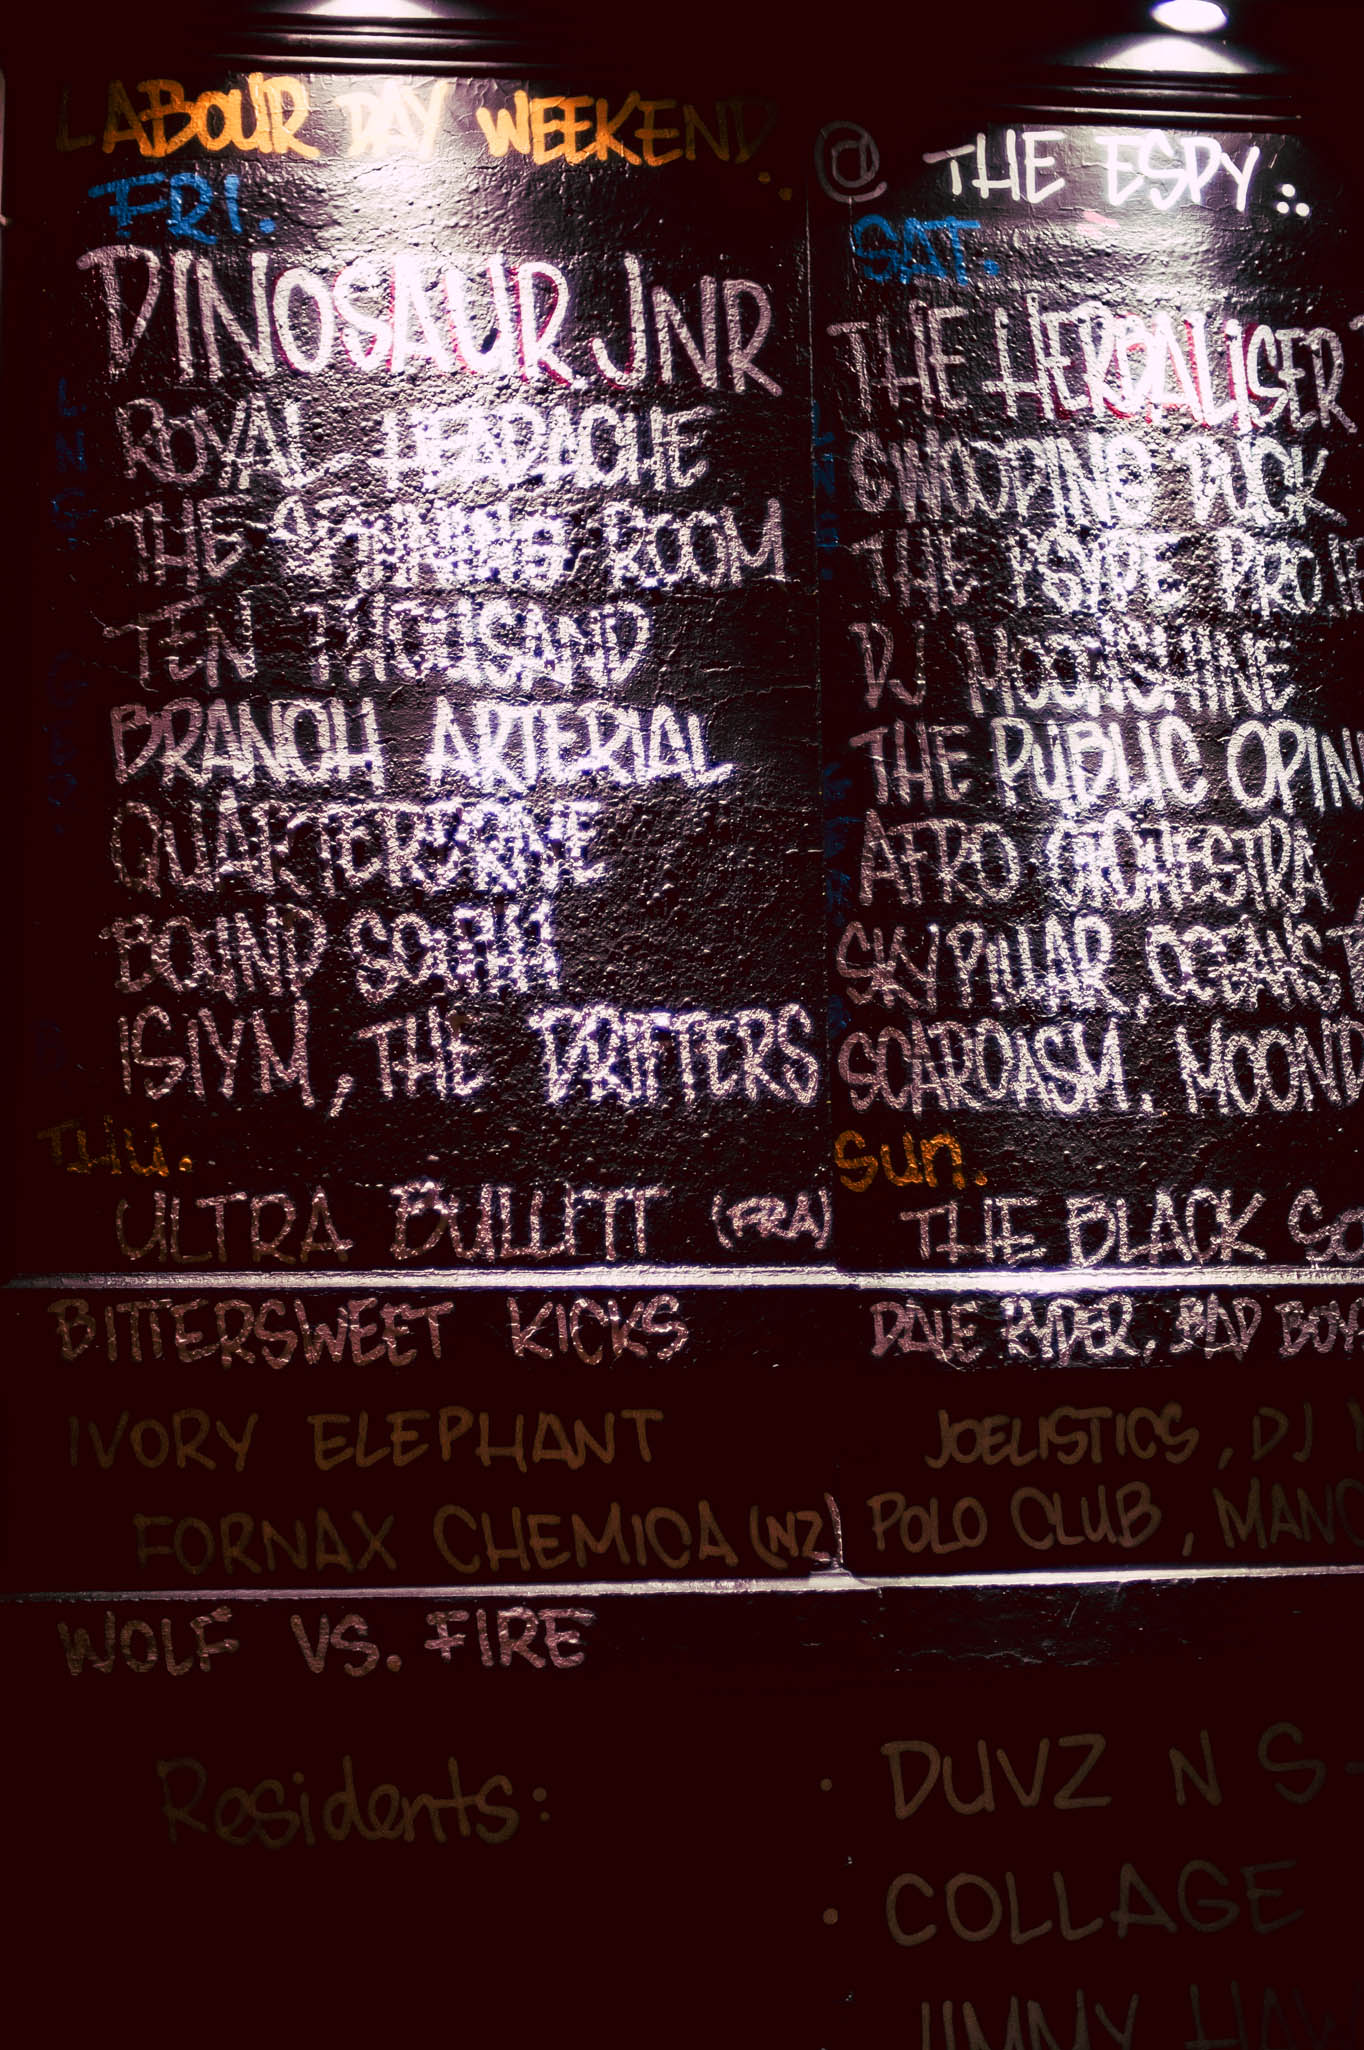 LABOUR DAY WEEKEND..
@ THE ESPY:.
FRI.
DINOSAUR JNR
ROYAL HEADACHE
THE SPINNING ROOM
TEN THOUSAND
BRANCH ARTERIAL
QUARTERBONE
BOUND SOUTH
ISIYM, THE DRIFTERS
THU.
ULTRA BULLITT (FRA)
BITTERSWEET KICKS
IVORY ELEPHANT
FORNAX CHEMICA (NZ)
WOLF VS. FIRE
Residents:
SAT.
THE HERBALISER
SWOOPING DUCK
THE PSYDE PROJE
DJ MOONSHINE
THE PUBLIC OPIN
AFRO ORCHESTRA
SKYPILLAR, OCEANS
SCARDASM. MOOND
Sun.
THE BLACK SO
DALE RYDER, BAD BOY
JOELISTICS, DJ
POLO CLUB, MANC
• DUVZ N S-
• COLLAGE
JIMMY HAW